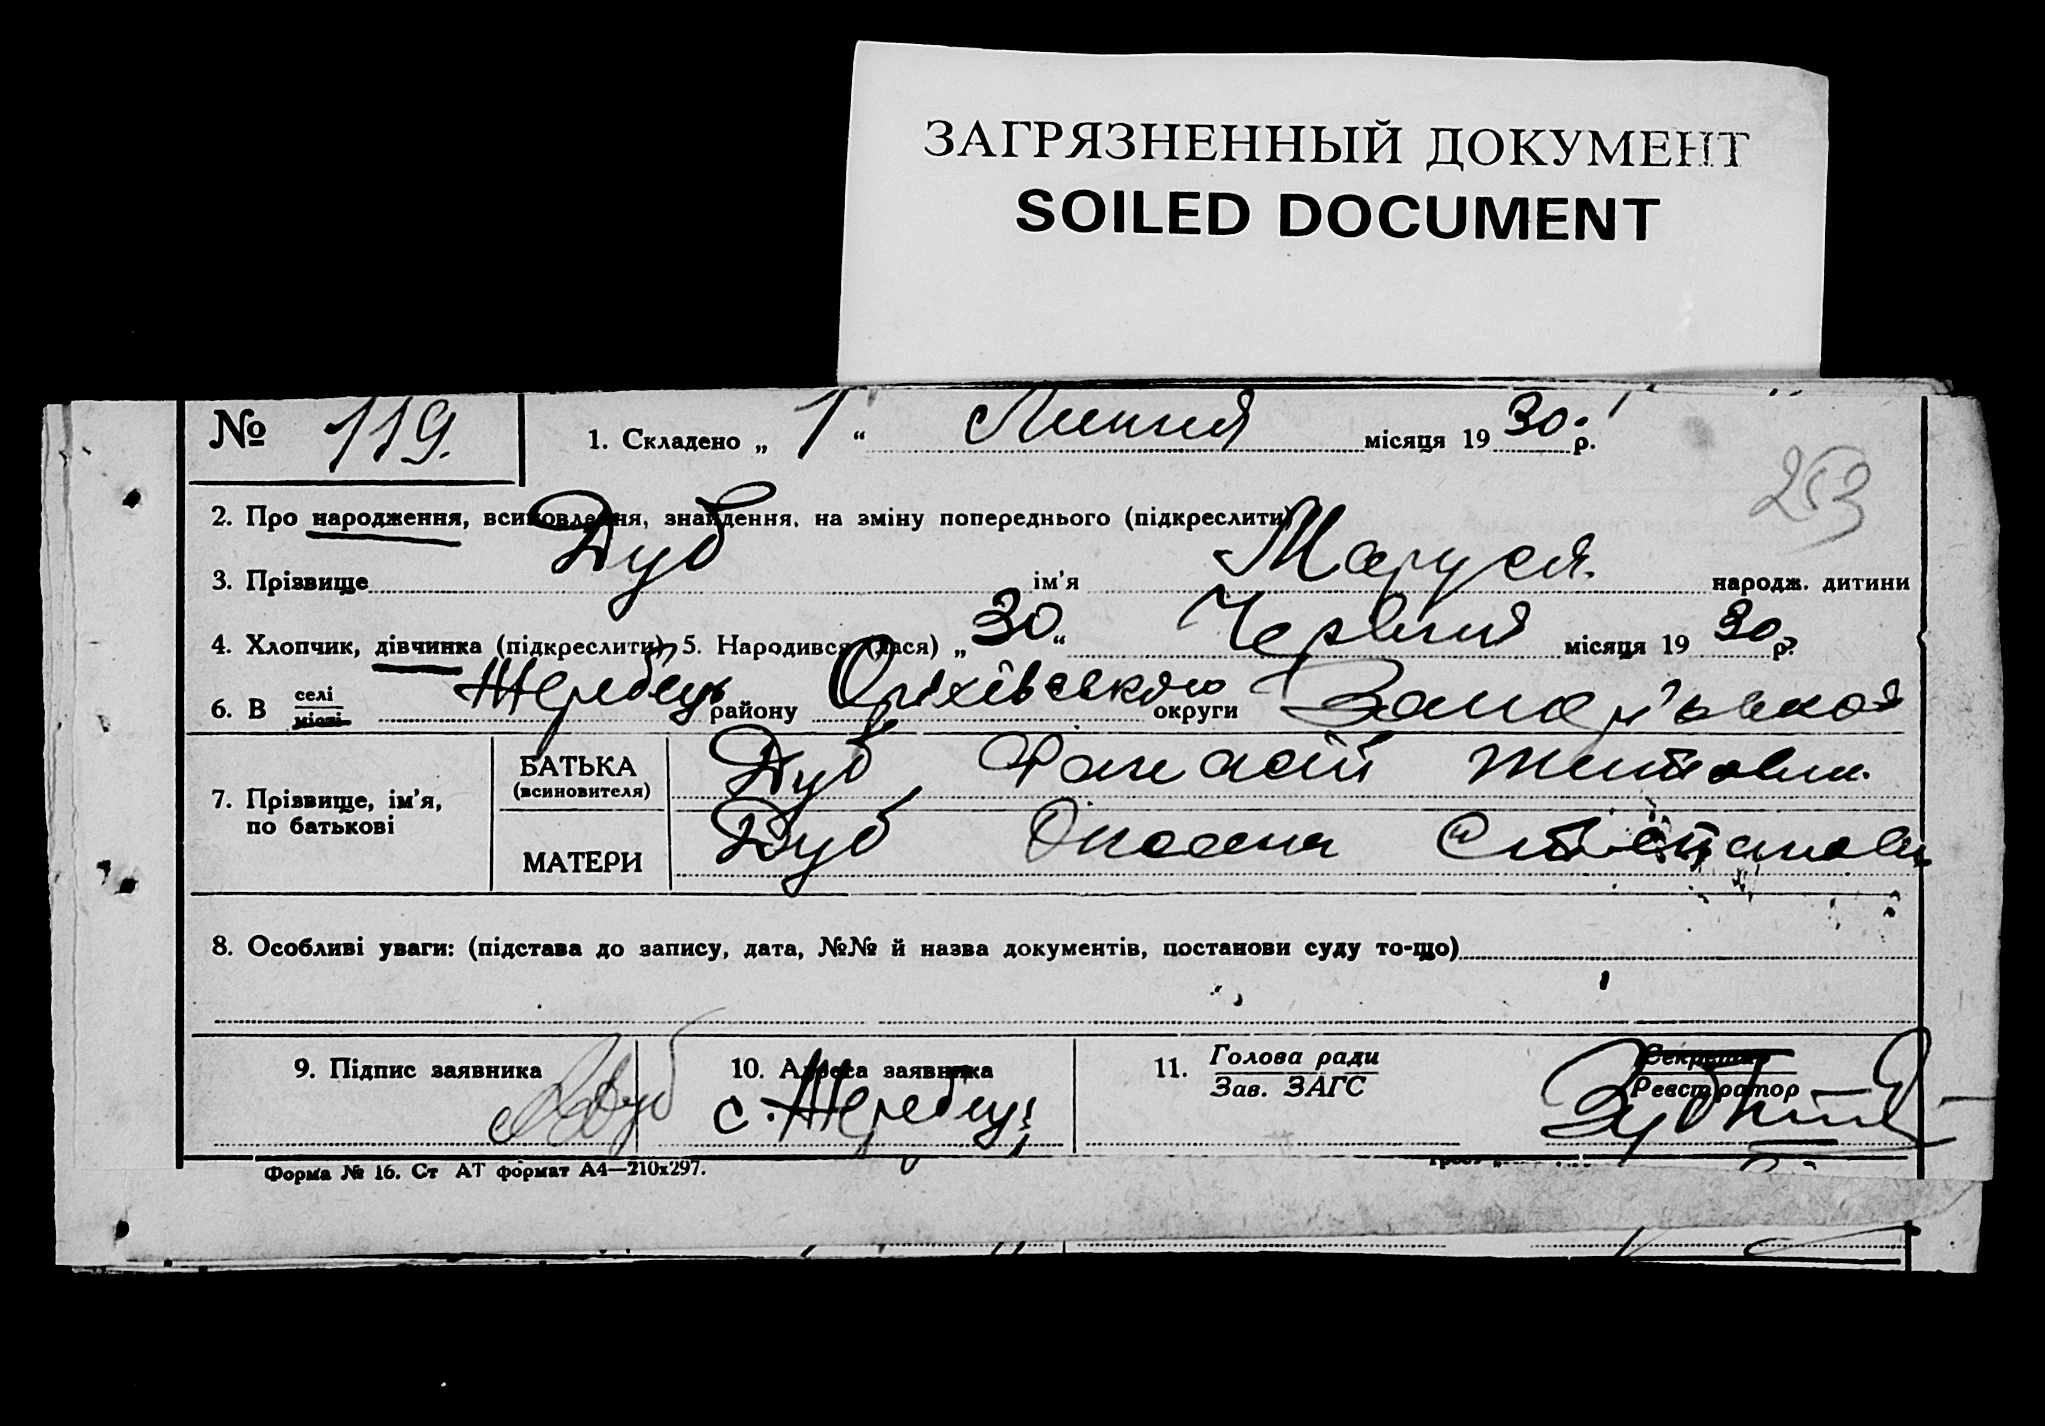 ЗАГРЯЗНЕННЫЙ ДОКУМЕНТ
SOILED DOCUMENT
№ 119. 1. Складено „ 1 “ Липня місяця 1930 р.
253
2. Про народження, всиновлення, знайдення, на зміну попереднього (підкреслити)
3. Прізвище Дуб ім'я Маруся. народж. дитини
4. Хлопчик, дівчинка (підкреслити) 5. Народився (лася) „ 30 “ Червня місяця 1930 р.
6. В селі місті Жеребець району Оріхівського округи Запоріз'ької
7. Прізвище, ім'я, по батькові
БАТЬКА (всиновителя) Дуб Панасій
МАТЕРИ Дуб Оксана
8. Особливі уваги: (підстава до запису, дата, №№ й назва документів, постанови суду то-що)
9. Підпис заявника Дуб 10. Адреса заявника 11. Голова ради Секретар
с. Жеребець Зав. ЗАГС Реєстратор
Форма № 16. Ст АТ формат А4—210х297.